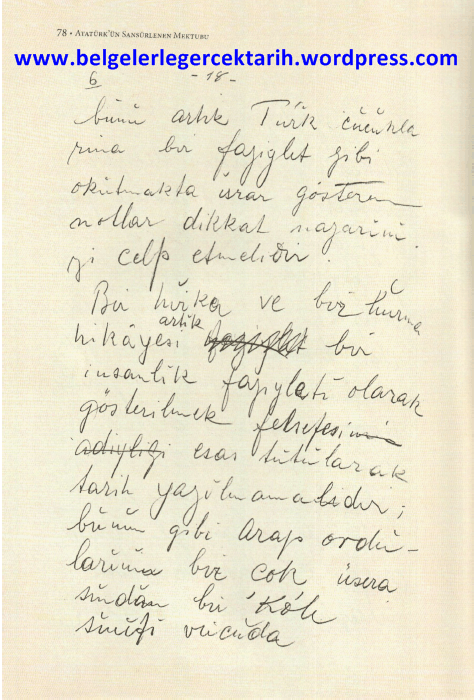 78 • Atatürk'ün Sansürlenen Mektubu
www.belgelerlegercektarih.wordpress.com
6 -18-
bunu artık Türk çocukla
rına bir faziylet gibi
okutmakta ısrar gösteren
notlar dikkat nazarını
zi celp etmelidir.
Bir hırka ve bir hurma
hikâyesi artık bir
insanlık faziyleti olarak
gösterilmek felsefesinin
adiyliği esas tutularak
tarih yazılmamalıdır;
bunun gibi Arap ordu-
larının bir çok üsera
sından bir "Köle
sınıfı vücuda